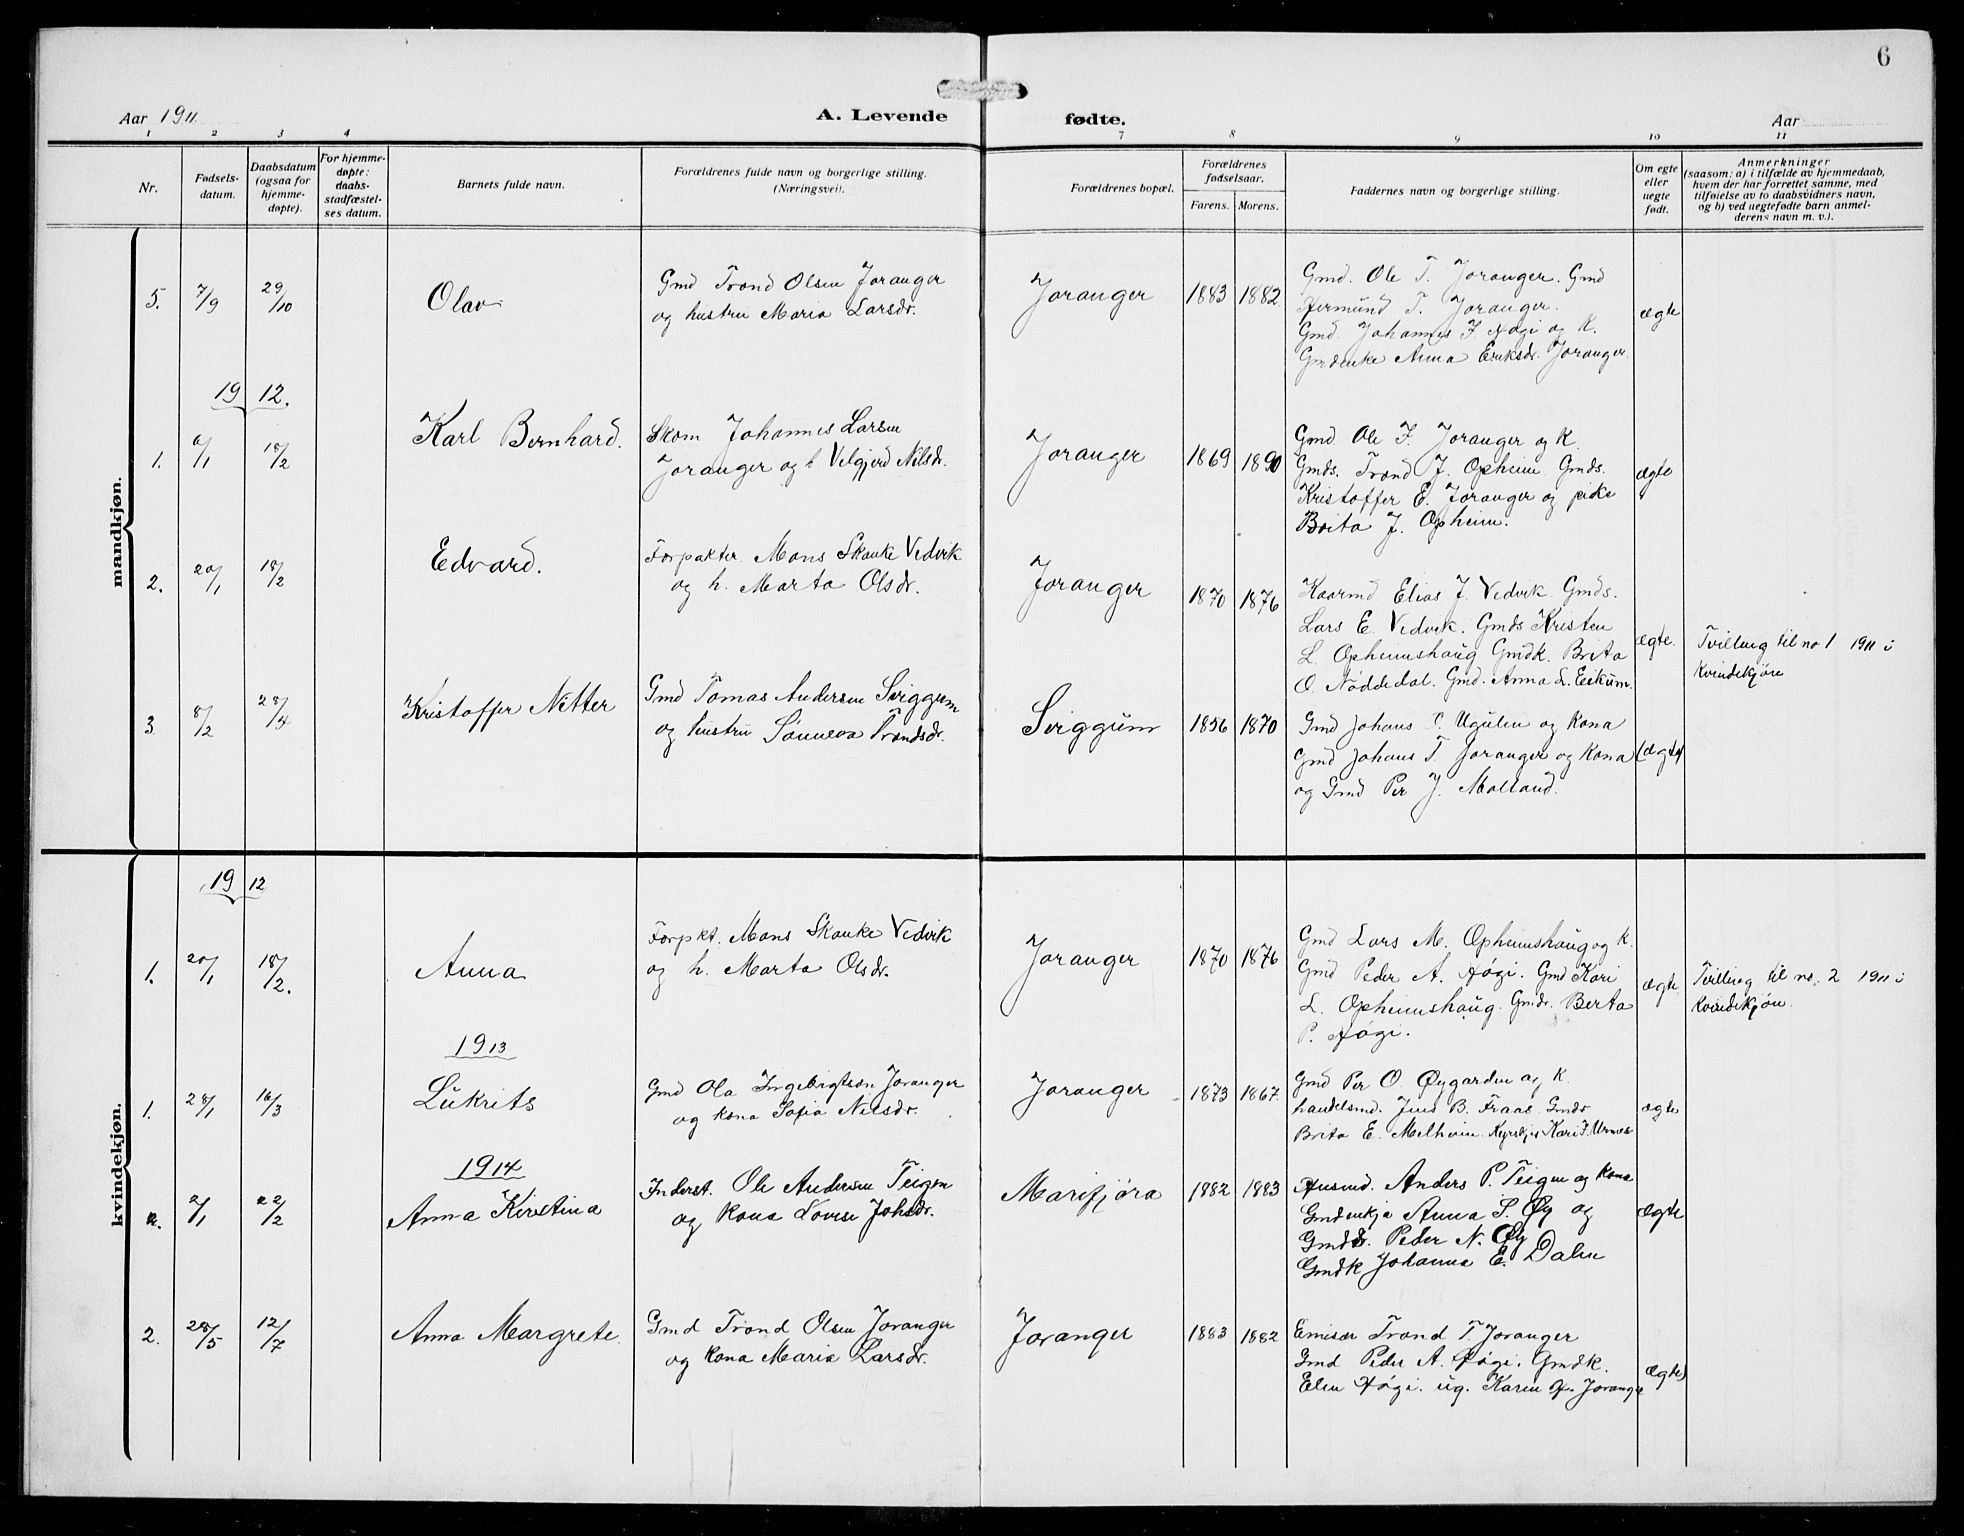 6
Aar 1911. A. Levende fødte. Aar
1 2 3 4 7 8 9 10 11
Nr.
Fødsels-
datum.
Daabsdatum
(ogsaa for
hjemme-
døpte).
For hjemme-
døpte:
daabs-
stadfæstel-
ses datum.
Barnets fulde navn.
Forældrenes fulde navn og borgerlige stilling.
(Næringsvei).
Forældrenes bopæl.
Forældrenes
fødselsaar.
Farens. Morens.
Faddernes navn og borgerlige stilling.
Om egte
eller
uegte
født.
Anmerkninger
(saasom: a) i tilfælde av hjemmedaab,
hvem der har forrettet samme, med
tilføielse av to daabsvidners navn,
og b) ved uegtefødte barn anmel-
derens navn m. v.).
mandkjøn.
5. 7/9 29/10 Olav
Gmd Trond Olsen Joranger
og hustru Maria Larsdr.
Joranger 1883 1882
Gmd. Ole T. Joranger. Gmd
T. Joranger.
Gmd. Johannes F. Høgi og K.
Gmdenke Anna Eriksdr. Joranger.
ægte
1912.
1. 6/1 18/2 Karl Bernhard.
Skom Johannes Larsen
Joranger og h. Velgjerd Nilsdr.
Joranger 1869 1890
Gmd Ole F. Joranger og K.
Gmds. Trond J. Opheim Gmds.
Kristoffer E. Joranger og pike
Brita J. Opheim.
ægte
2. 20/1 18/2 Edvard.
Forpakter Mons Skauke Vedvik
og h. Marta Olsdr.
Joranger 1870 1876
Kaarmd Elias J. Vedvik. Gmds.
Lars E. Vedvik. Gmds Kristen
L. Opheimshaug Gmdk. Brita
O. Nøddedal. Gmd. Anna L. Eskum.
ægte.
Tvilling til no 1 1911 i
Kvindekjøn
3. 8/2 28/4 Kristoffer Nitter
Gmd Tomas Andersen Sviggum
og hustru Sønneva Trondsdr.
Sviggum 1856 1870
Gmd Johans C Ugulen og Kona
Gmd Johans T Joranger og Kona
og Gmd Per J. Molland.
(ægte)
kvindekjøn.
1912
1. 20/1 18/2. Anna
Forpkt. Mons Skauke Vedvik
og h. Marta Olsdr.
Joranger 1870 1876
Gmd Lars M. Opheimshaug og K.
Gmd Peder A. Høgi. Gmd Kari
L. Opheimshaug. Gmdr. Berta
P. Høgi.
ægte
Tvilling til no. 2 1911 i
Kvindekjøn.
1913
1. 28/1 16/3 Lukrits
Gmd Ola Ingebrigtson Joranger
og kona Sofia Nilsdr.
Joranger 1873 1867.
Gmd Per O. Øygarden og K.
handelsmd. Jens B. Fraas Gmdr
Brita E. Melheim. Kari J. Urnes
ægte
1914
2/1 22/2 Anna Kirstina
Inderst. Ole Andersen Teigen
og kona Lovise Johsdr.
Marifjøra 1882 1883
Husmd. Anders P. Teigen og kona
Gmdenkja Anna S. Øy og
Gmds. Peder N. Øy
Gmdk Johanna E. Dalen
ægte
2. 28/5 12/7 Anna Margrete.
Gmd Trond Olsen Joranger
og kona Maria Larsdr.
Joranger 1883 1882
Emisær Trond T. Joranger
Gmd Peder A. Høgi. Gmdk.
Elen Høgi. ug. Karen O. Joranger
ægte)